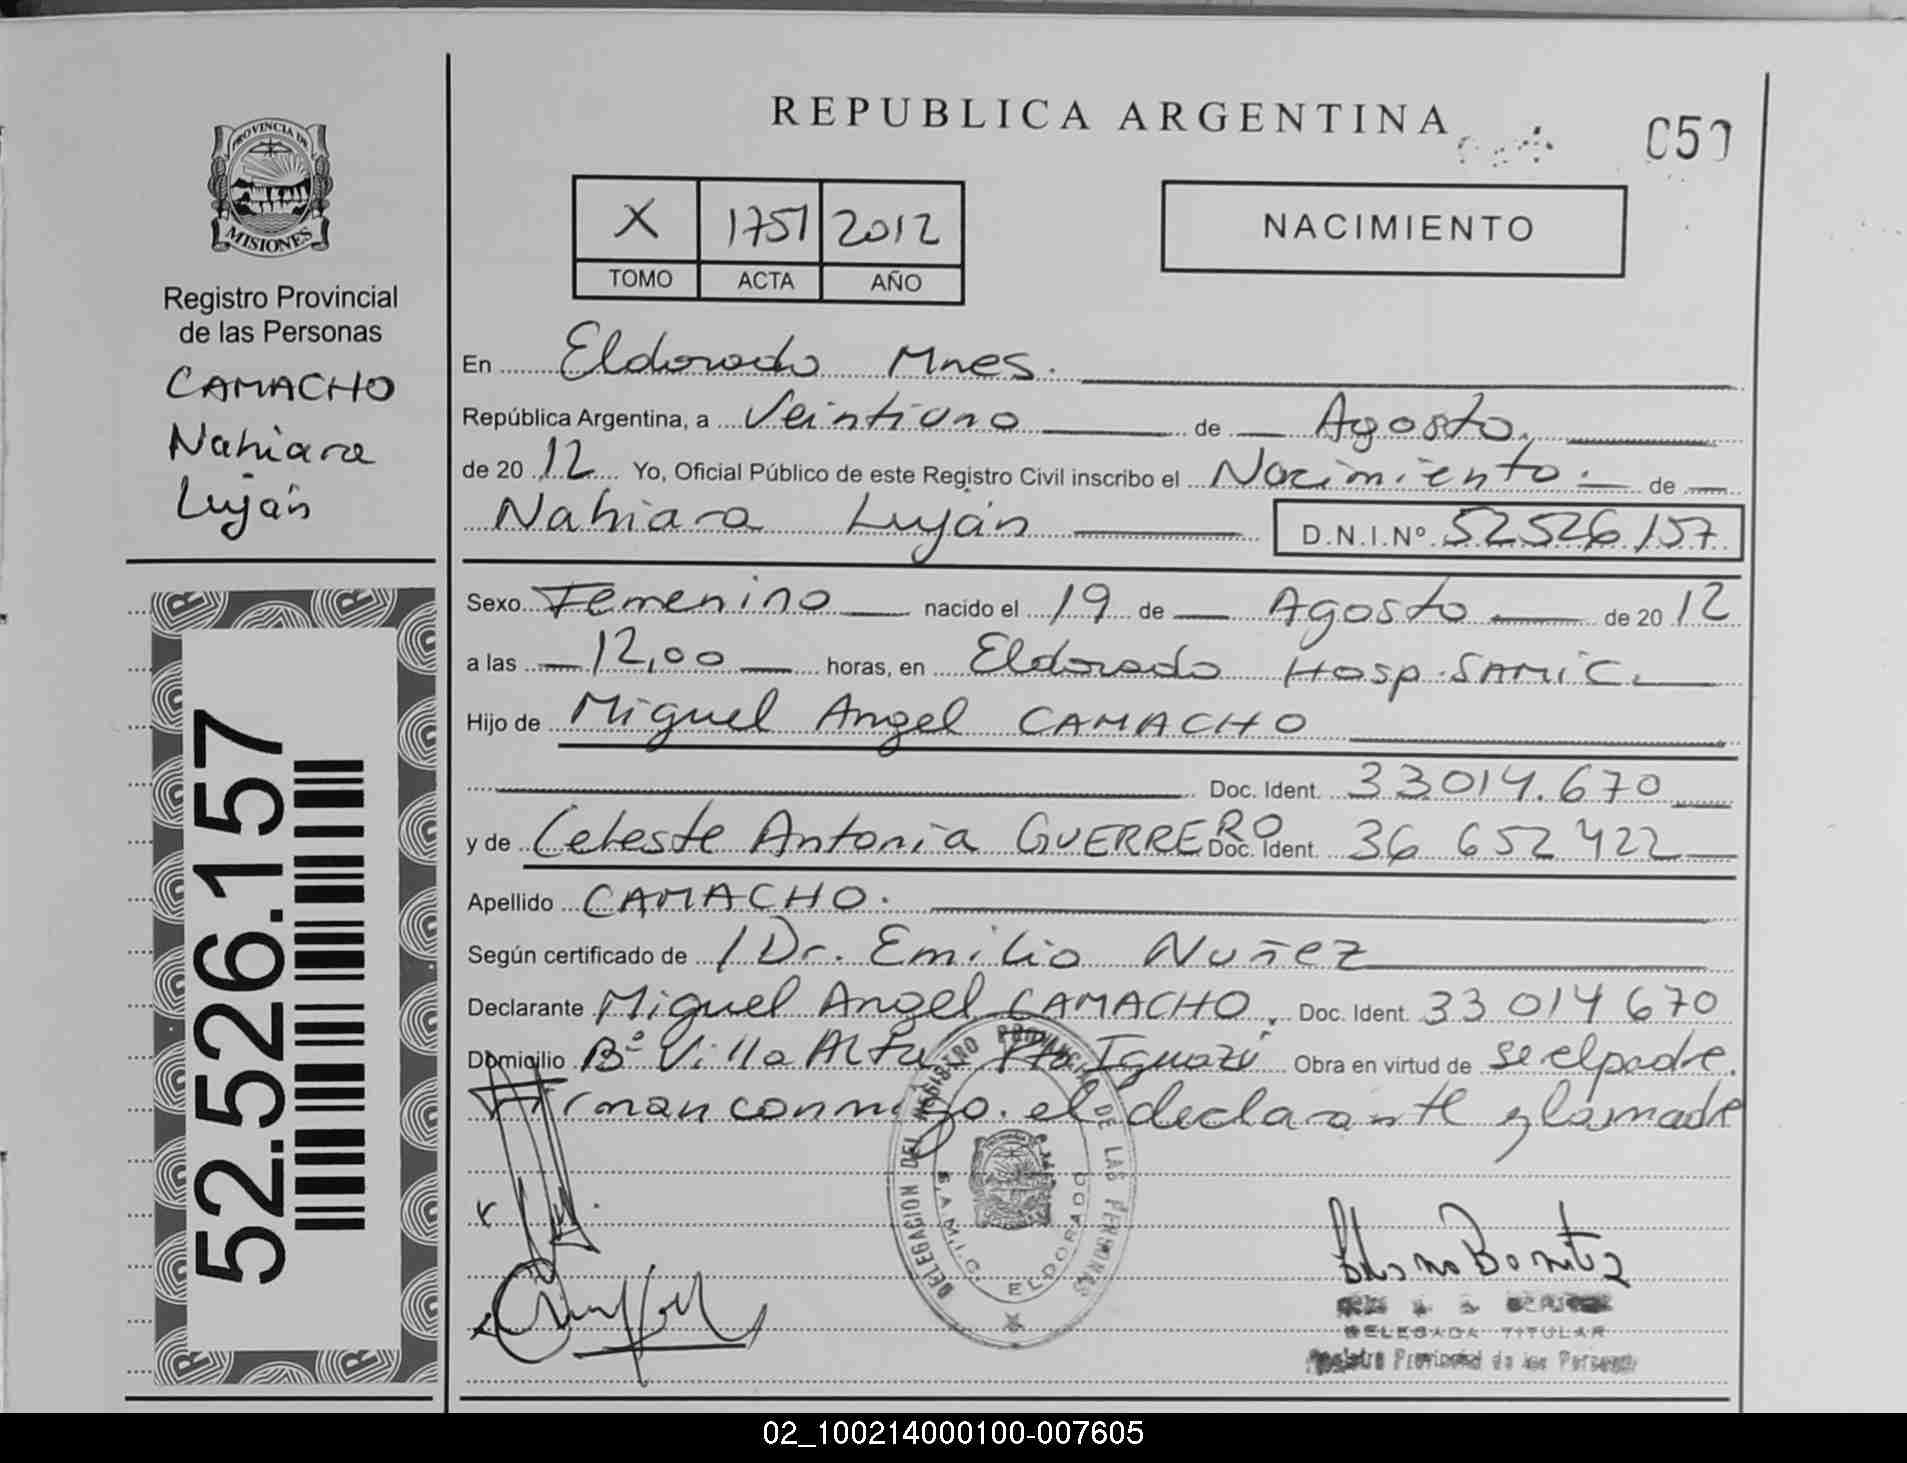 REPUBLICA ARGENTINA
PROVINCIA DE
MISIONES
Registro Provincial
de las Personas
CAMACHO
Nahiara
Luján
52.526.157
X 1751 2012
TOMO ACTA AÑO
NACIMIENTO
En Eldorado Mnes.
República Argentina, a Veintiuno de Agosto.
de 2012 Yo, Oficial Público de este Registro Civil inscribo el Nacimiento de
Nahiara Luján D.N.I.Nº 52526157
Sexo Femenino nacido el 19 de Agosto de 2012
a las 12,00 horas, en Eldorado Hosp. SAMIC.
Hijo de Miguel Angel CAMACHO
Doc. Ident. 33014.670
y de Celeste Antonia GUERRERO Doc. Ident. 36 652 422
Apellido CAMACHO.
Según certificado de / Dr. Emilio Nuñez
Declarante Miguel Angel CAMACHO. Doc. Ident. 33 014 670
Domicilio Bº Villa Alta Pto Iguazú Obra en virtud de se el padre.
Firman conmigo. el declarante y la madre
DELEGACION DEL REGISTRO PROVINCIAL DE LAS PERSONAS
S.A.M.I.C. ELDORADO
DELEGADA TITULAR
Registro Provincial de las Personas
02_100214000100-007605